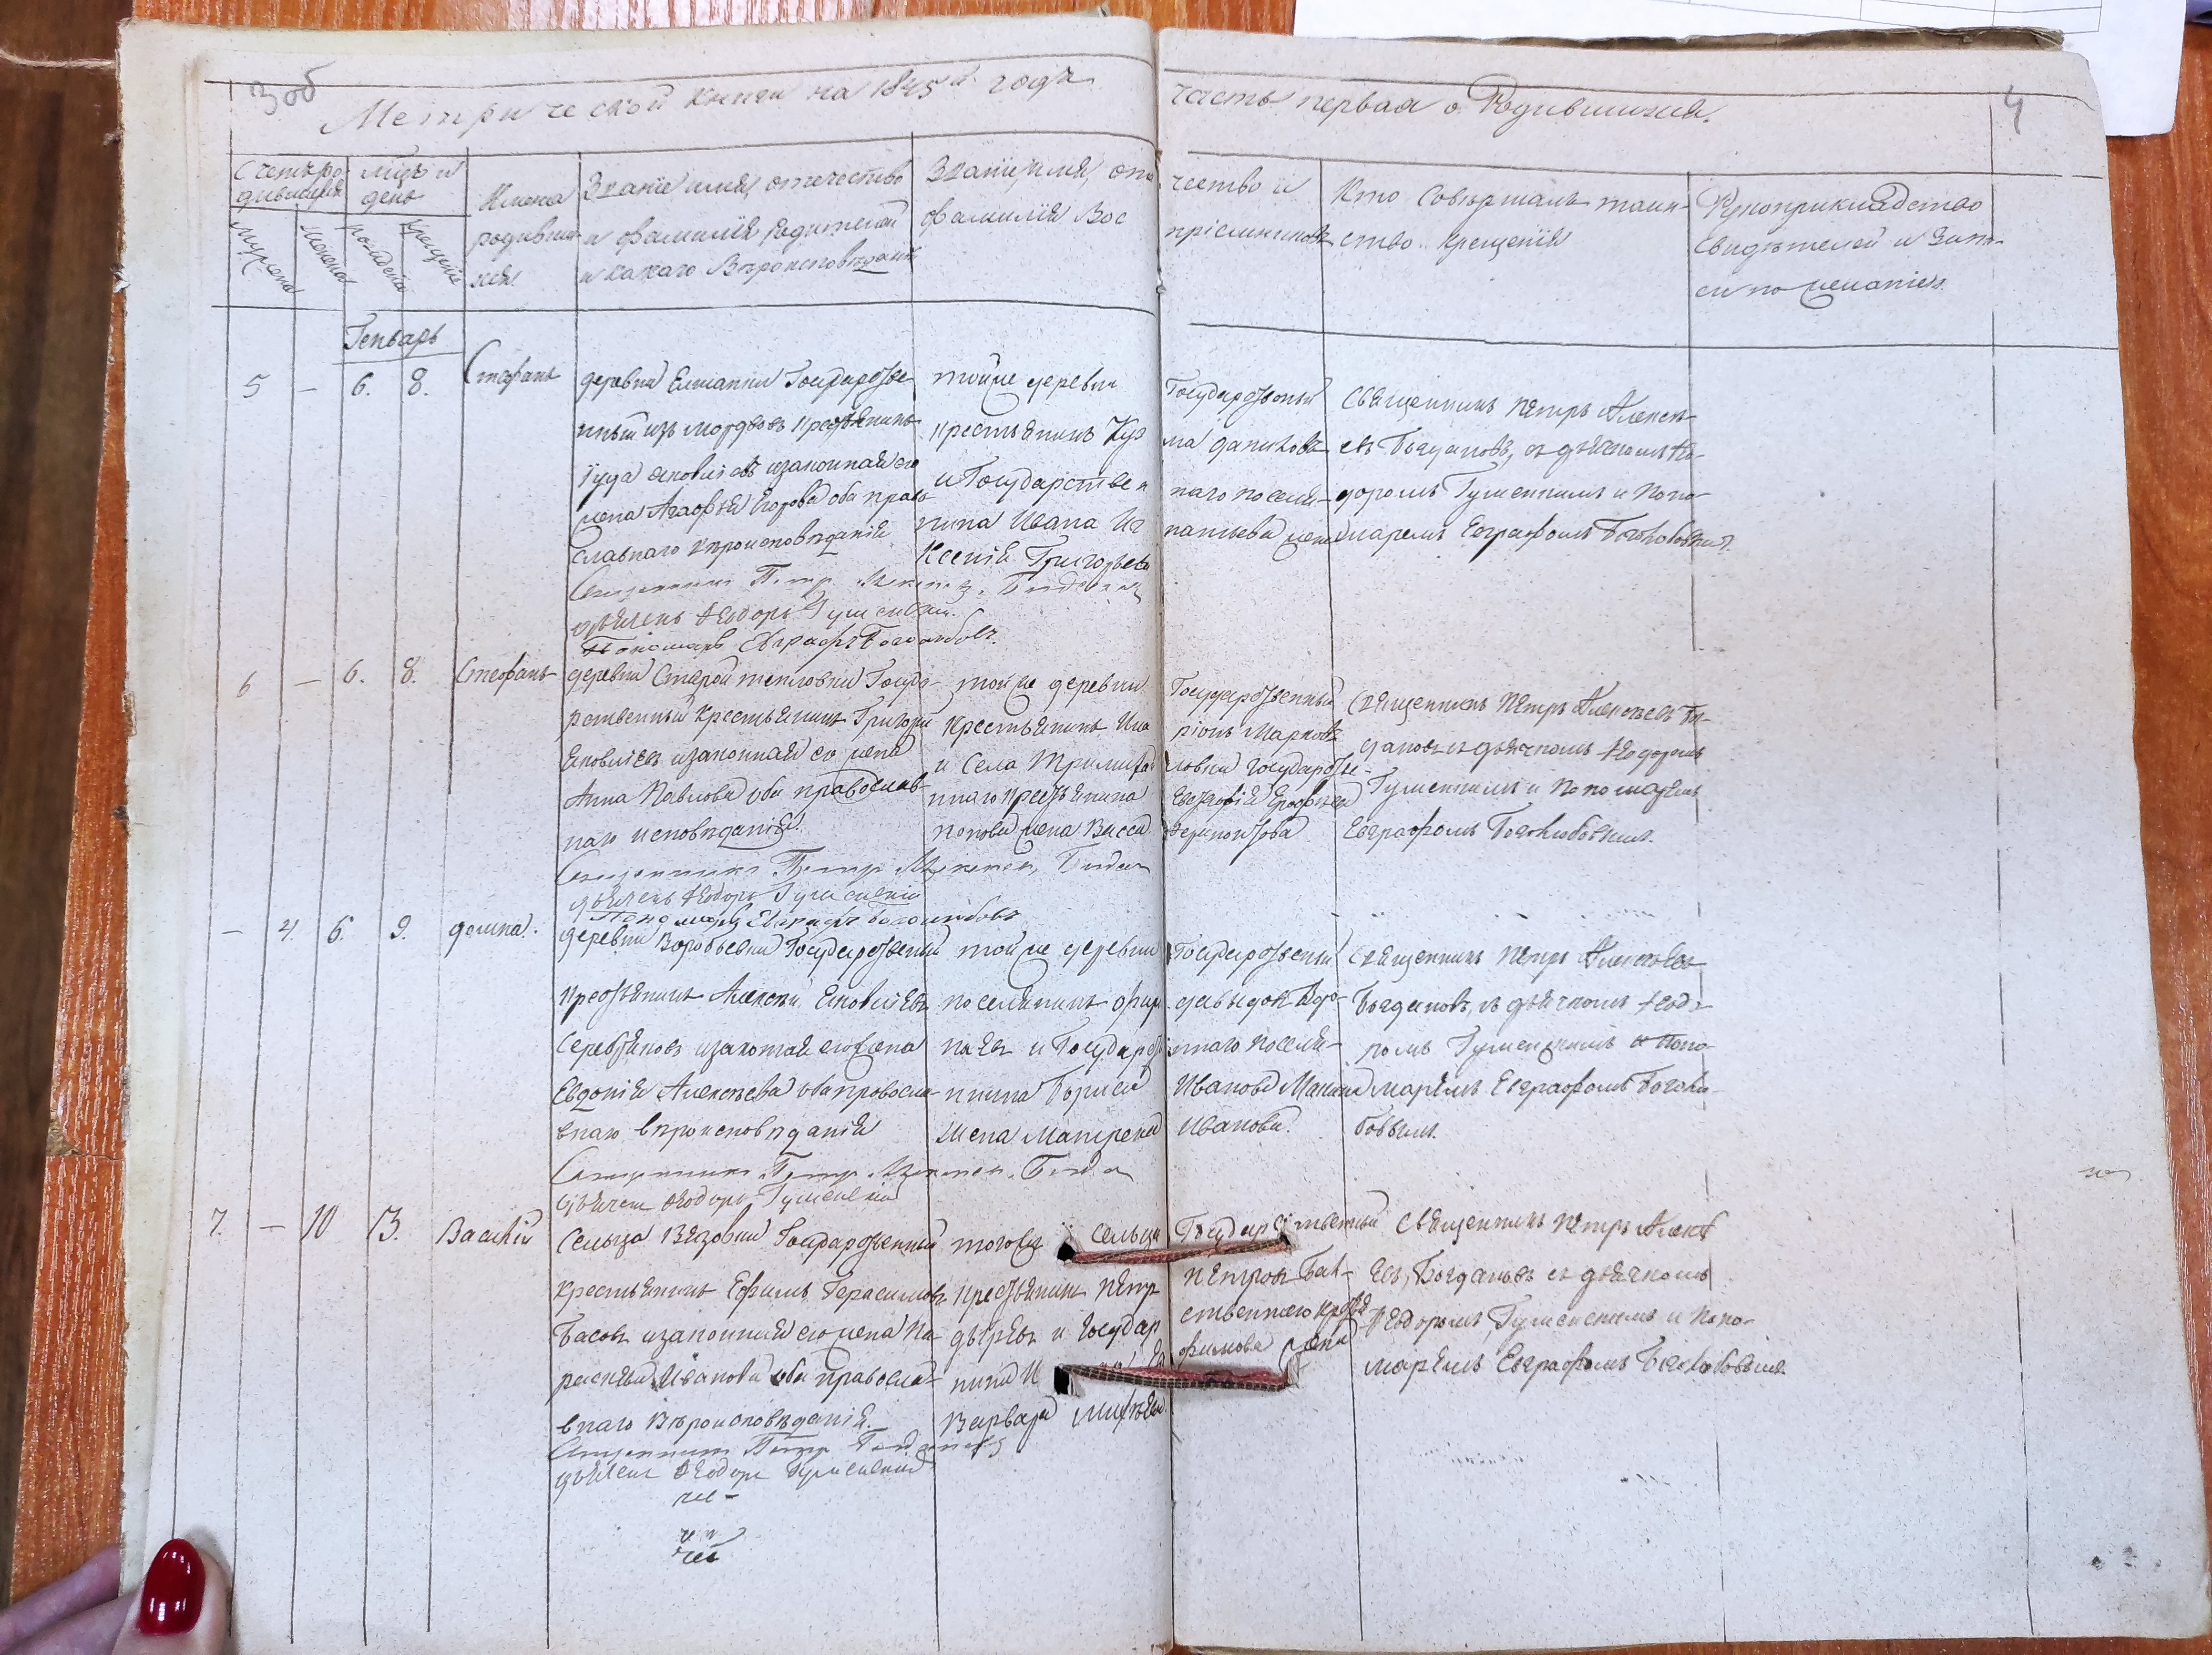 3 об
Метрической книги на 1845й годъ
часть первая о Родившихся.
4
Счетъ ро-
дившихся
Мужеска
Женска
Мцъ и
день
рожденія
Крещенія
Имена
родивших
ся.
Званіе имя, отечество
и фамилія Родителей
и какаго Вѣроисповѣданія
Званіе, имя, оте
фамилія Вос
чество и
пріемниковъ
Кто Совершалъ таин-
ство Крещенія
Рукоприкладство
Свидѣтелей и Запи-
си по желанію
Генварь
5 — 6. 8. Стефанъ
деревни Елшанки Государстве
нный изъ мордвовъ крестьянинъ
Іуда Яковлевъ и законная его
жена Агафья Егорова оба право
славнаго вѣроисповѣданія
Священникъ Петръ Алексѣев Богданов
дьячекъ Ѳеодоръ Гуменскій
Пономарь Евграфъ Боголюбовъ.
тойже деревни
крестьянинъ Куз
и Государствен
нина Ивана Иг
Ксенія Григорьева
Государственный
ма Даниловъ
наго поселя-
натьева жена
Священникъ Петръ Алексѣ-
евъ Богдановъ, съ дьячкомъ Ѳео-
доромъ Гуменскимъ и Поно-
маремъ Евграфомъ Боголюбовымъ.
6 — 6. 8. Стефанъ
деревни Старой Государ-
рственный Крестьянинъ Григорій
Яковлевъ и законная его жена
Анна Павлова оба православ-
наго исповѣданія.
Священникъ Петръ Алексѣев Богданов
дьячекъ Ѳеодоръ Гуменскій
Пономарь Евграфъ Боголюбовъ
тойже деревни
Крестьянинъ Ила
и Села
ннаго крестьянина
попова жена Васса
Государственный
ріонъ Марковъ
ловки Государстве-
Ерофѣева
Священникъ Петръ Алексѣевъ Бог-
дановъ съ дьячкомъ Ѳеодоромъ
Гуменскимъ и Пономаремъ
Евграфомъ Боголюбовымъ.
— 4. 6. 9. Домна.
деревни Воробьевки Государственный
крестьянинъ Алексѣй Яковлевъ
Серебряковъ и законная его жена
Евдокія Алексѣева оба правосла-
внаго вѣроисповѣданія
Священникъ Петръ Алексѣев Богданов
дьячекъ Ѳеодоръ Гуменскій
тойже деревни
поселянинъ
и Государст
нина Бориса
жена Матрена
Государственный
Давыдовъ
ннаго поселя-
Иванова
Иванова.
Священникъ Петръ Алексѣевъ
Богдановъ, съ дьячкомъ Ѳеодо-
ромъ Гуменскимъ и Поно-
маремъ Евграфомъ Боголю-
бовымъ.
7. — 10 13. Василій
Сельца Вязовки Государственный
Крестьянинъ Ефимъ Герасимовъ
Басовъ и законная его жена Па-
раскева Иванова оба правосла-
внаго Вѣроисповѣданія.
Священникъ Петръ Богдановъ
дьячекъ Ѳеодоръ Гуменскій
тогоже сельца
крестьянинъ Петръ
и Государ
нина И
Варвара
Государственный
Петровъ
ственнаго
фимова жена
Священникъ Петръ Алексѣ
евъ, Богдановъ съ дьячкомъ
Ѳеодоромъ, Гуменскимъ и Поно-
маремъ Евграфомъ Боголюбовымъ.